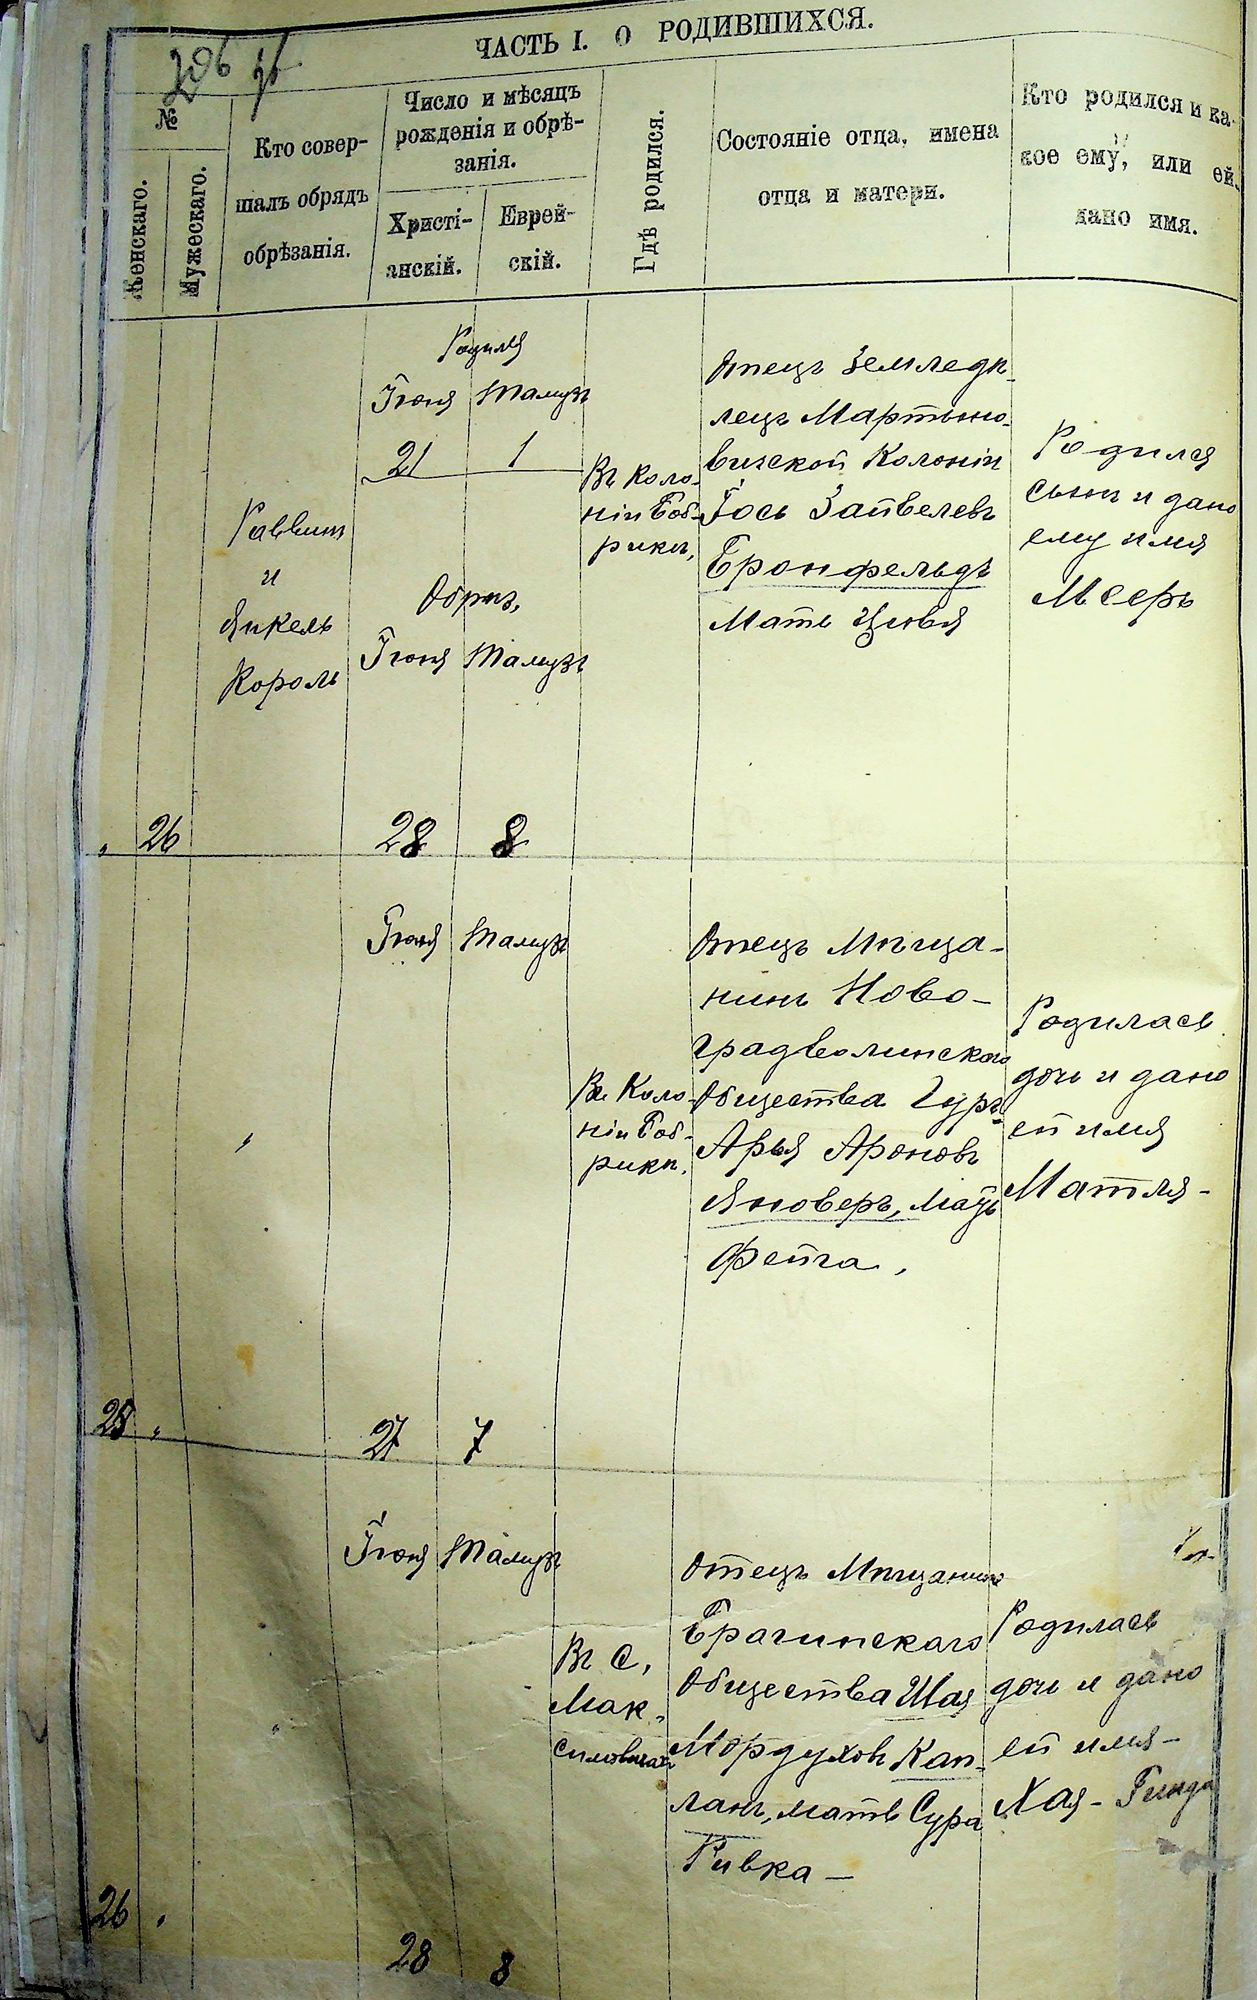 206
ЧАСТЬ I. О РОДИВШИХСЯ.
№
Женскаго.
Мужескаго.
Кто совер-
шалъ обрядъ
обрѣзанія.
Число и мѣсяцъ
рожденія и обрѣ-
занія.
Христі-
анскій.
Еврей-
скій.
Гдѣ родился.
Состояніе отца, имена
отца и матери.
Кто родился и ка-
кое ему, или ей,
дано имя.
26
Раввинъ
и
Янкель
Король
Родился
Іюня Тамузъ
21 1
Обрѣз,
Іюня Тамузъ
28 8
Въ Коло-
ніи Боб-
рикъ,
Отецъ Земледѣ-
лецъ Мартыно-
вичской Колоніи
Іось Зайвелевъ
Бронфельдъ
Мать Цивья
Родился
сынъ и дано
ему имя
Мееръ
25
Іюня Тамузъ
27 7
Въ Коло-
ніи Боб-
рикъ,
Отецъ Мѣща-
нинъ Ново-
градволинскаго
Общества Гурш-
Арья Ароновъ
Яноверъ, мать
Фейга,
Родилась
дочь и дано
ей имя
Матля-
26
Іюня Тамузъ
28 8
Въ С,
Мак-
симовичахъ
Отецъ Мѣщанинъ
Брагинскаго
Общества Шая
Мордуховъ Кап-
ланъ, мать Сура
Ривка-
Родилась
дочь и дано
ей имя-
Хая-Гинда